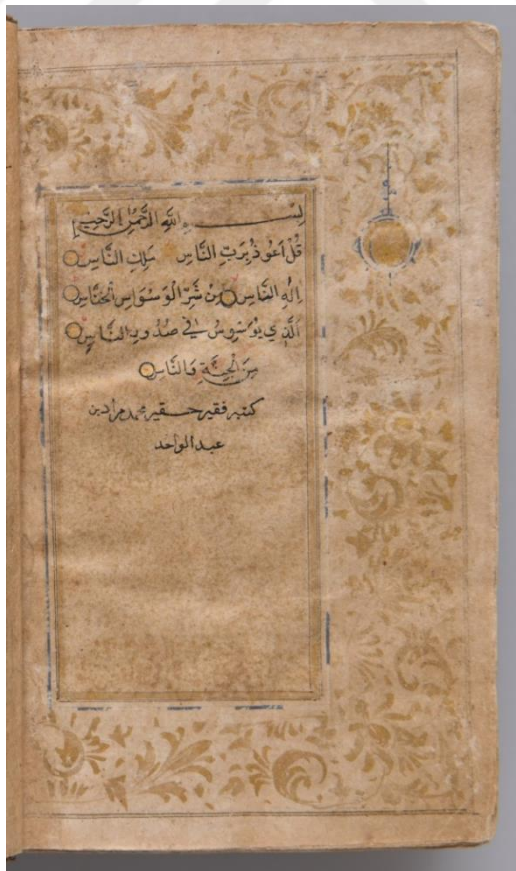 بسم الله الرحمن الرحيم
قُلْ اَعُوذُ بِرَبِّ النَّاسِ مَلِكِ النَّاسِ
اِلٰهِ النَّاسِ مِنْ شَرِّ الْوَسْوَاسِ الْخَنَّاسِ
اَلَّذِي يُوَسْوِسُ فِي صُدُورِ النَّاسِ
مِنَ الْجِنَّةِ وَالنَّاسِ
كتبه فقير حقير محمد مراد بن
عبد الواحد